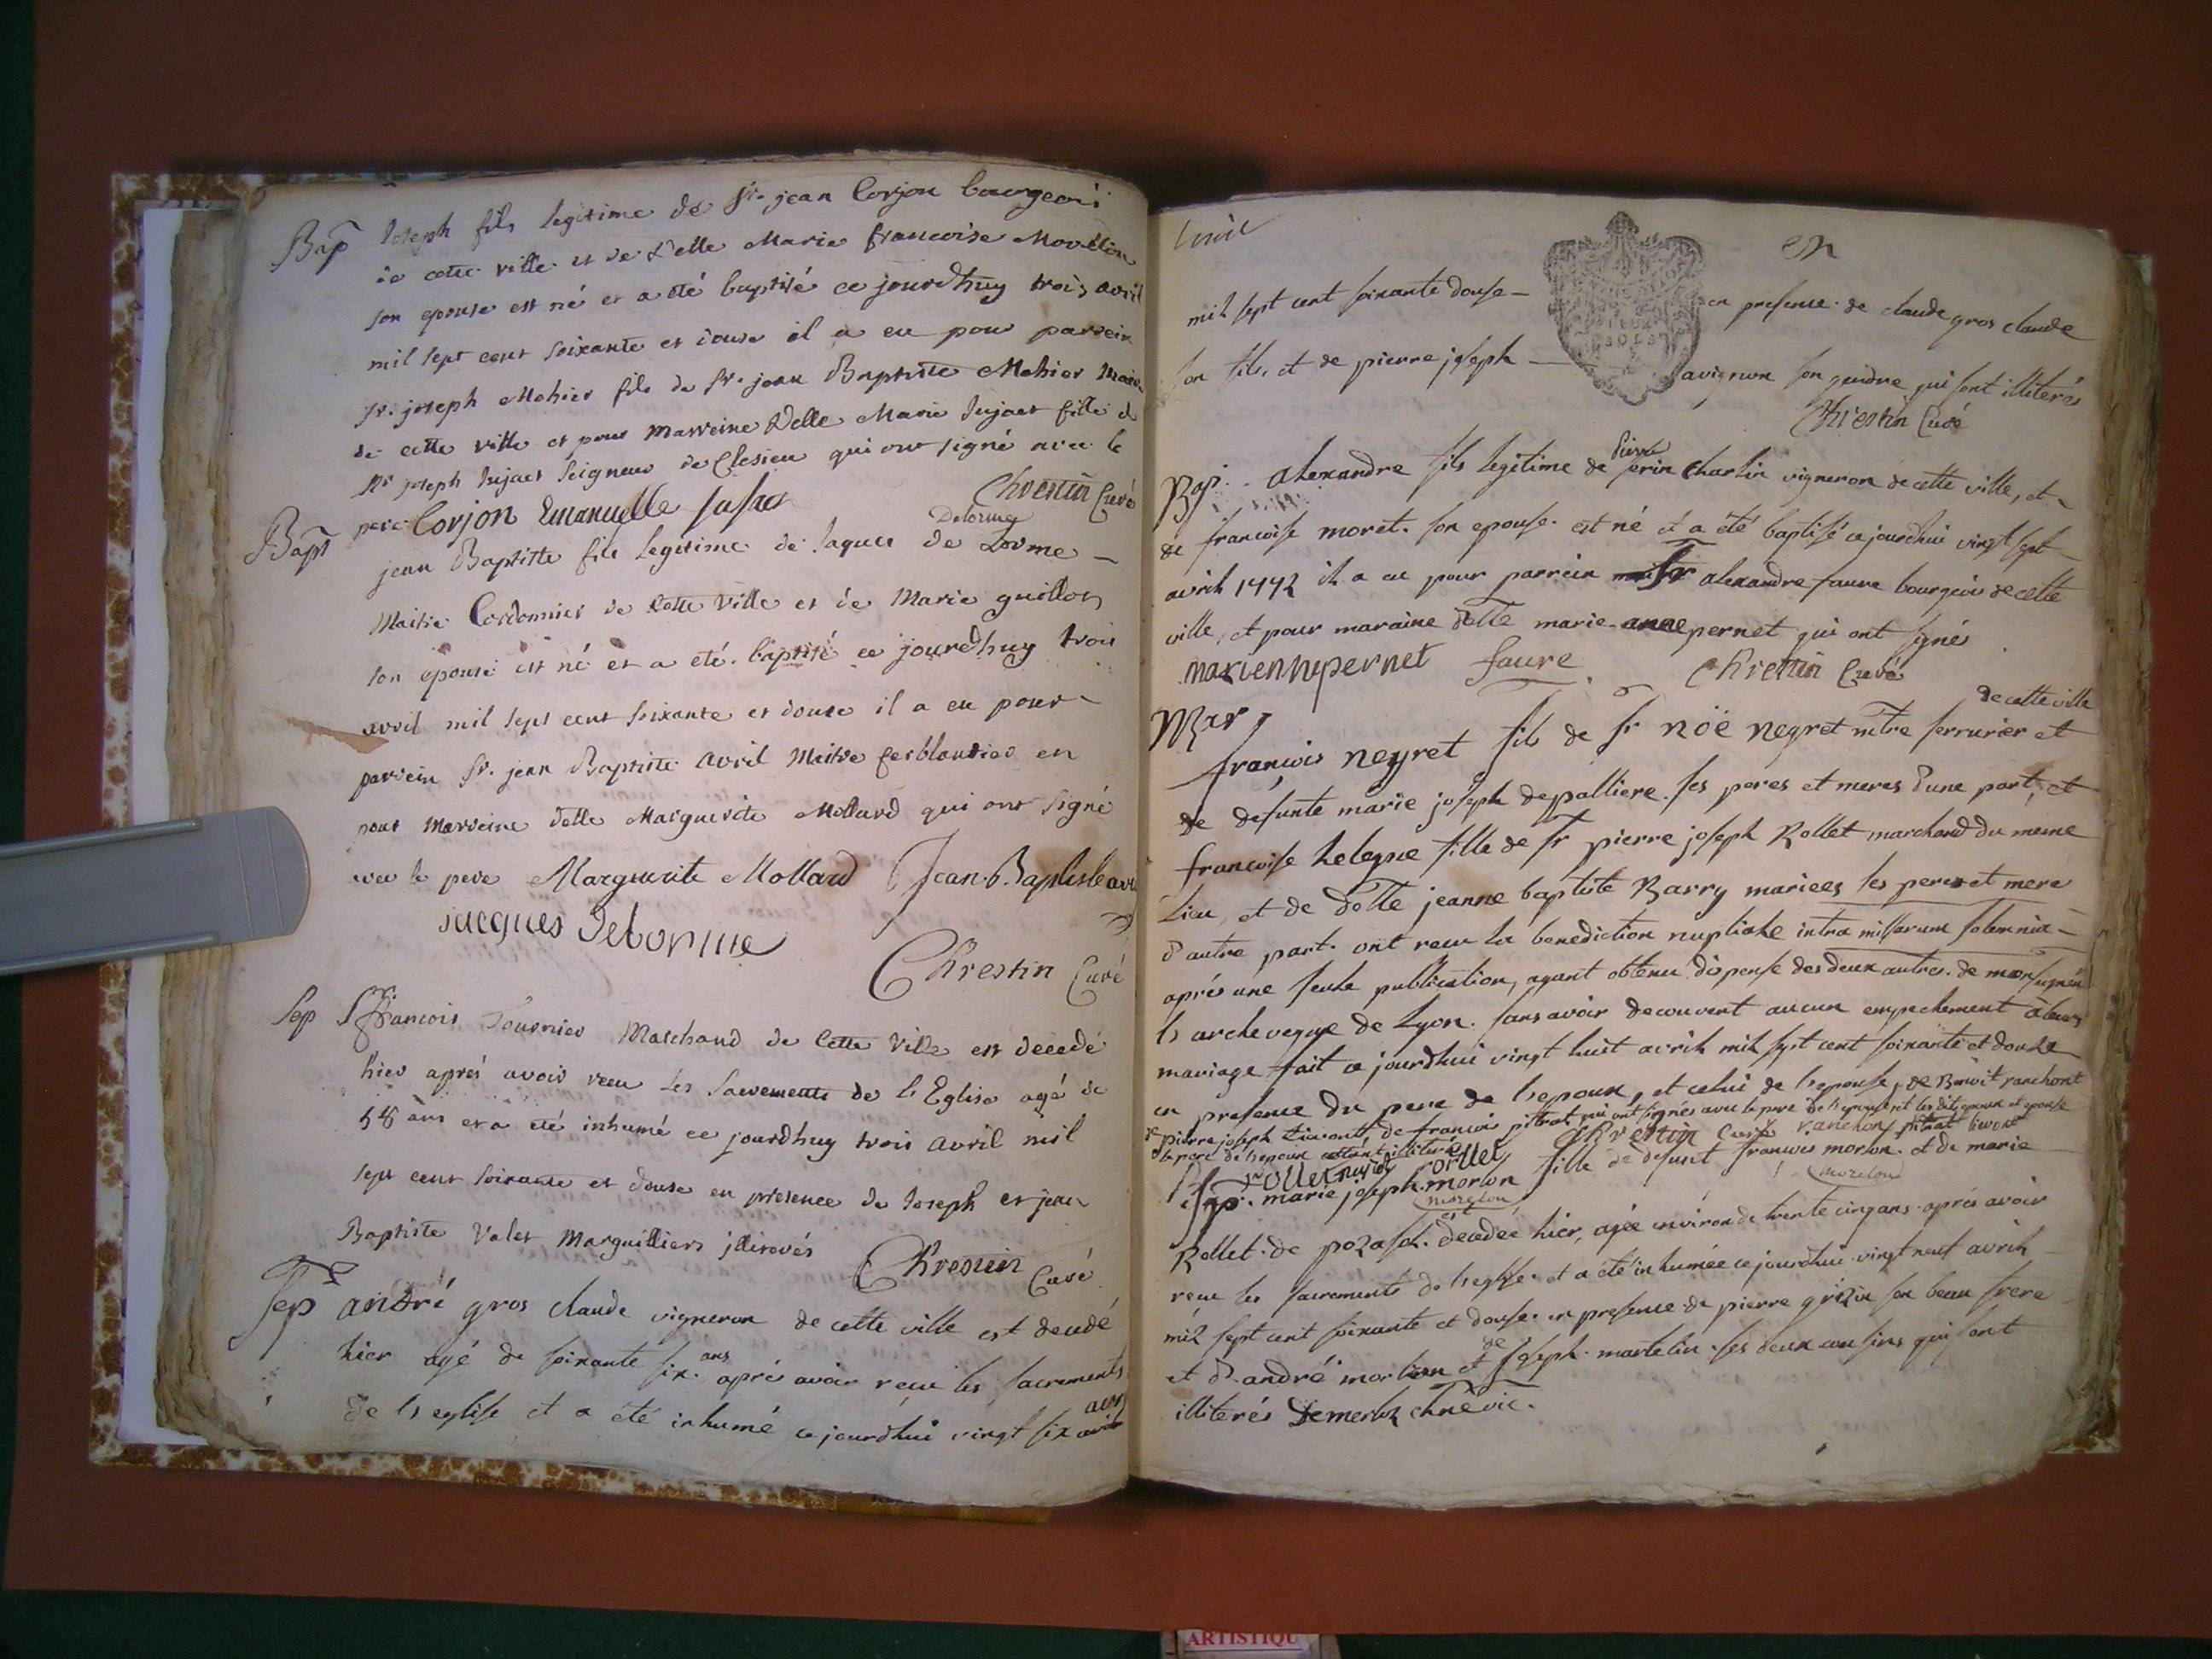 Bap Joseph fils legitime de Sr. jean Corjon bourgeois
de cette ville et de Delle Marie francoise
son epouse est né et a été baptisé ce jourdhuy trois avril
mil sept cent soixante et douse il a eu pour parrein
Sr. joseph Mehier fils de Sr. jean Baptiste Mehier
de cette ville et pour marreine Delle Marie fille de
Mr joseph Seigneur de qui ont signé avec le
pere Corjon Emanuelle Chrestin Curé
Delorme
Bapt jean Baptiste fils legitime de Jaques de Lorme
Maitre Cordonnier de cette ville et de Marie guillon
son epouse est né et a été baptisé ce jourdhuy trois
avril mil sept cent soixante et douse il a eu pour
parrein Sr. jean Baptiste avril Maitre ferblantier et
pour Marreine delle Marguerite Mollard qui ont signé
avec le pere Marguerite Mollard Jean Baptiste
jacques Delorme
Chrestin Curé
Sep Sr francois Tournier Marchand de cette ville est decedé
hier aprés avoir recu les sacrements de l'Eglise agé de
58 ans et a été inhumé ce jourdhuy trois avril mil
sept cent soixante et douse en presence de Joseph et jean
Baptiste Valet Marguilliers
Chrestin Curé
Sep andré gros claude vigneron de cette ville est decedé
hier agé de soixante six ans aprés avoir reçu les sacrements
de l'eglise et a été inhumé ce jourdhui vingt six avril
mil sept cent soixante douse en presence de claude gros claude
son fils, et de pierre joseph savignon son gendre qui sont illiterés
Chrestin Curé
Pierre
Bap. alexandre fils legitime de perin charlin vigneron de cette ville, et
de francoise moret son epouse est né et a été baptisé ce jourdhui vingt sept
avril 1772 il a eu pour parrein Sr alexandre faure bourgeois de cette
ville, et pour maraine delle marie anne pernet qui ont signés
faure Chrestin Curé
de cette ville
Mar
françois neyret fils de Sr nöë neyret mtre serrurier et
de defunte marie joseph depalliere ses peres et meres d'une part, et
francoise fille de Sr pierre joseph Rollet marchand du meme
lieu, et de delle jeanne baptiste Barry mariees ses peres et mere
d'autre part ont recu la benediction nuptiale intra missarum solemnia
aprés une seule publication, ayant obtenu dispense des deux autres de monseigneur
l'archeveque de Lyon sans avoir decouvert aucun empechement à leur
mariage fait ce jourdhui vingt huit avril mil sept cent soixante et douse
en presence du pere de l'epoux, et celui de l'epouse, de Benoit ranchont
de pierre joseph de francois pitrat, qui ont signés avec le pere de l'epouse et les dits epoux et epouse
le pere de l'epoux illiteré Chrestin Curé ranchon pitrat
Sep. marie joseph morlon fille de defunt francois morlon et de marie
morelon
Rollet de decedée hier, agée environ de trente cinq ans aprés avoir
reçu les sacrements de l'eglise et a été inhumée ce jourdhui vingt neuf avril
mil sept cent soixante et douse en presence de pierre grizin son beau frere
et d'andré et de joseph martelin ses deux cousins qui sont
illiterés